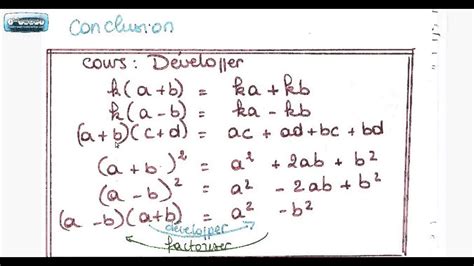 Conclusion
Cours : Développer
k(a+b) = ka + kb
k(a-b) = ka - kb
(a+b)(c+d) = ac + ad + bc + bd
(a+b)² = a² + 2ab + b²
(a-b)² = a² - 2ab + b²
(a-b)(a+b) = a² - b²
développer
factoriser